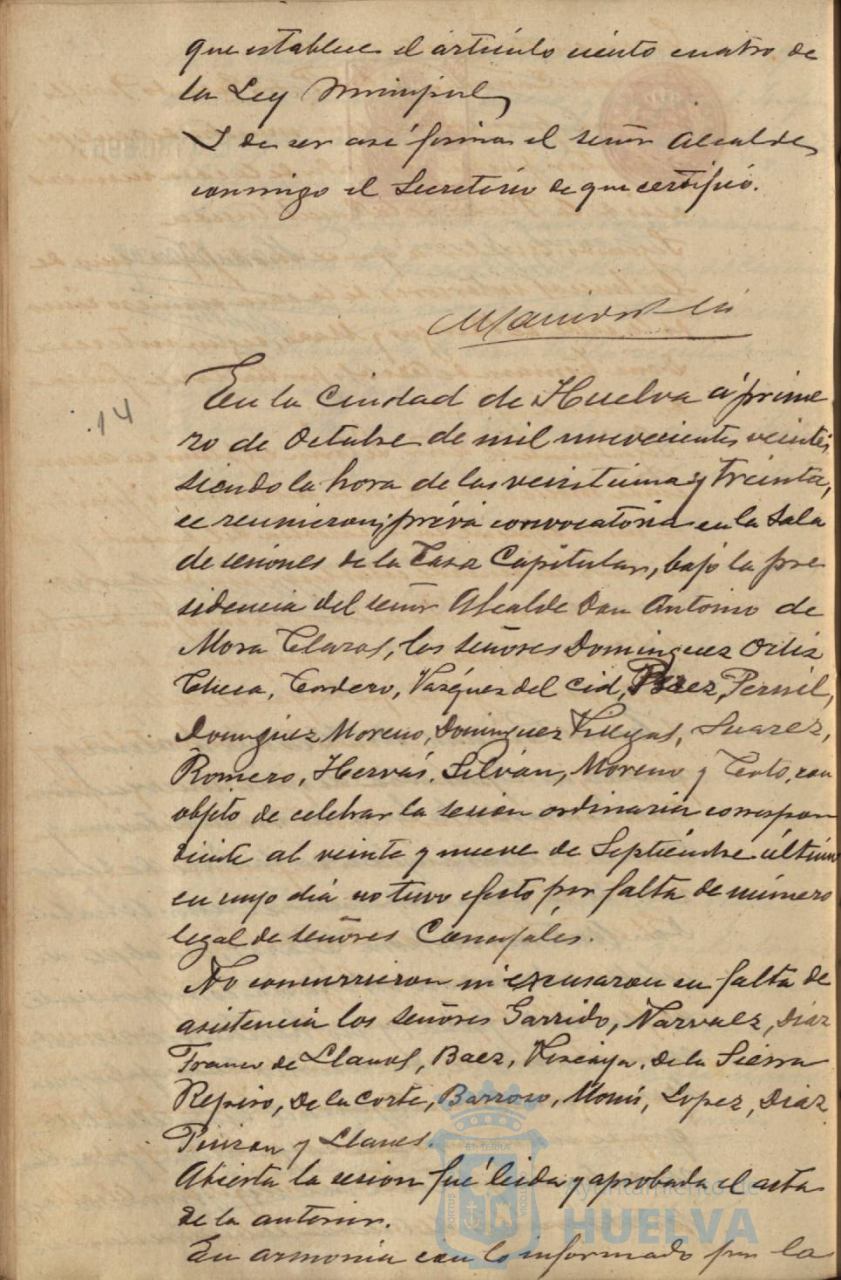 que establece el artículo ciento cuatro de
la Ley Municipal,
Y de ser asi firma el señor Alcalde,
conmigo el Secretario de que certifico.
14
En la Ciudad de Huelva á prime
ro de Octubre de mil novecientos veinte,
siendo la hora de las veintiuna y treinta,
se reunieron, previa convocatoria en la Sala
de sesiones de la Casa Capitular, bajo la pre
sidencia del señor Alcalde Don Antonio de
Mora Claros, los señores Dominguez Ortiz
Checa, Cordero, Vazquez del Cid, Perez, Pernil,
Dominguez Moreno, Dominguez Villegas, Suarez,
Romero, Hervás, Silván, Moreno y Coto, con
objeto de celebrar la sesion ordinaria correspon
diente al veinte y nueve de Septiembre último
en cuyo dia no tuvo efecto por falta de número
legal de señores Concejales.
No concurrieron ni excusaron su falta de
asistencia los señores Garrido, Narvaez, Diaz
Franco de Llanos, Baez, Vizcaya, de la Sierra
Repiso, De la Corte, Barroso, Lopez, Diaz
Pinzon y Llanes.
Abierta la sesion fué leida y aprobada el acta
de la anterior.
En armonia con lo informado por la
Ayuntamiento de
HUELVA